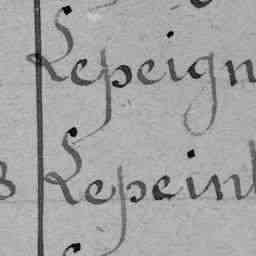 Lepeign
8 Lepeint